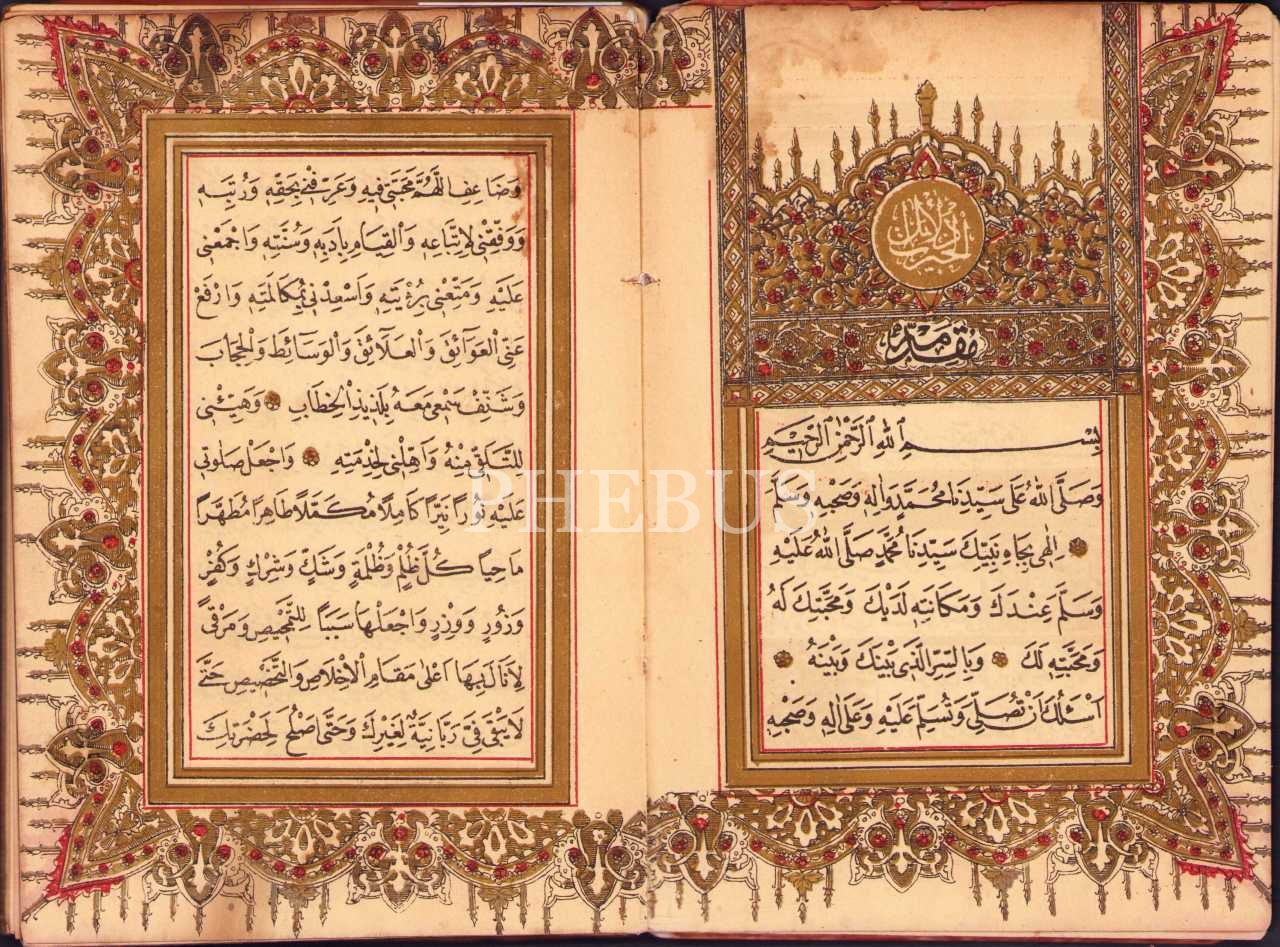 دلائل الخيرات
مقدمه
بِسْمِ ٱللهِ ٱلرَّحْمٰنِ ٱلرَّحِيمِ
وَصَلَّى اللهُ عَلَى سَيِّدِنَا مُحَمَّدٍ وَاٰلِهِ وَصَحْبِهِ وَسَلَّمَ
اِلٰهِى بِجَاهِ نَبِيِّكَ سَيِّدِنَا مُحَمَّدٍ صَلَّى اللهُ عَلَيْهِ
وَسَلَّمَ عِنْدَكَ وَمَكَانَتِهِ لَدَيْكَ وَمَحَبَّتِكَ لَهُ
وَمَحَبَّتِهِ لَكَ وَبِالسِّرِّ الَّذِى بَيْنَكَ وَبَيْنَهُ
اَسْئَلُكَ اَنْ تُصَلِّىَ وَتُسَلِّمَ عَلَيْهِ وَعَلٰى اٰلِهِ وَصَحْبِهِ
وَضَاعِفِ اللّٰهُمَّ مَحَبَّتِى فِيهِ وَعَرِّفْنِى بِحَقِّهِ وَرُتَبِهِ
وَوَفِّقْنِى لِاتِّبَاعِهِ وَالْقِيَامِ بِاٰدَابِهِ وَسُنَّتِهِ وَاجْمَعْنِى
عَلَيْهِ وَمَتِّعْنِى بِرُؤْيَتِهِ وَاَسْعِدْنِى بِمُكَالَمَتِهِ وَارْفَعْ
عَنِّى الْعَوَائِقَ وَالْعَلَائِقَ وَالْوَسَائِطَ وَالْحِجَابَ
وَشَنِّفْ سَمْعِى مَعَهُ بِلَذِيذِ الْخِطَابِ وَهَيِّئْنِى
لِلتَّلَقِّى مِنْهُ وَاَهِّلْنِى لِخِدْمَتِهِ وَاجْعَلْ صَلَوٰتِى
عَلَيْهِ نُورًا نَيِّرًا كَامِلًا مُكَمَّلًا طَاهِرًا مُطَهَّرًا
مَاحِيًا كُلَّ ظُلْمٍ وَظُلْمَةٍ وَشَكٍّ وَشِرْكٍ وَكُفْرٍ
وَزُورٍ وَوِزْرٍ وَاجْعَلْهَا سَبَبًا لِلتَّمْحِيصِ وَمَرْقًى
لِاَنَالَ بِهَا اَعْلٰى مَقَامِ الْاِخْلَاصِ وَالتَّخْصِيصِ حَتّٰى
لَا يَبْقٰى فِىَّ رَبَّانِيَّةٌ لِغَيْرِكَ وَحَتّٰى اَصْلُحَ لِحَضْرَتِكَ
PHEBUS